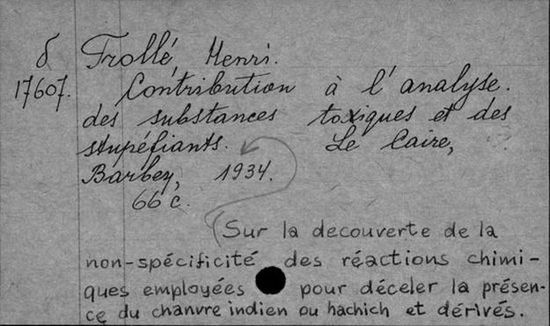 δ Trollé, Henri.
17607. Contribution à l'analyse.
des substances toxiques et des
stupéfiants. Le Caire,
Barbey, 1934.
66 c.
Sur la decouverte de la
non-spécificité des réactions chimi-
ques employées pour déceler la présen-
ce du chanvre indien ou hachich et dérivés.